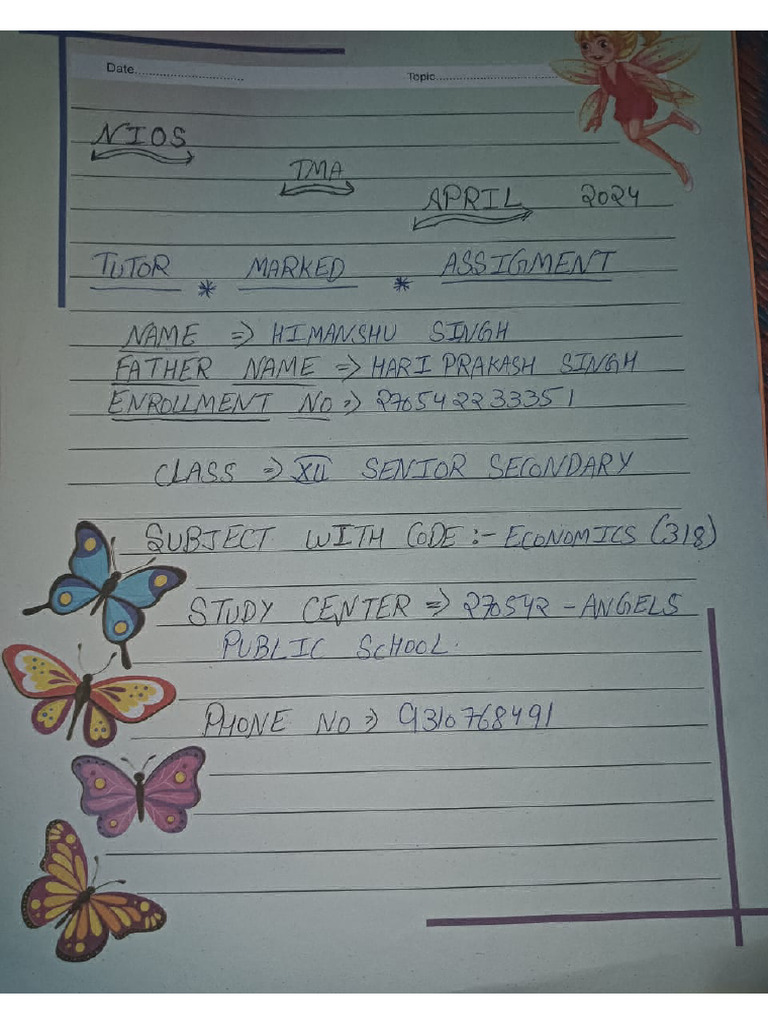 Date............................ Topic....................................
NIOS
TMA
APRIL 2024
TUTOR * MARKED * ASSIGMENT
NAME => HIMANSHU SINGH
FATHER NAME => HARI PRAKASH SINGH
ENROLLMENT NO => 270542233351
CLASS => XII SENIOR SECONDARY
SUBJECT WITH CODE :- ECONOMICS (318)
STUDY CENTER => 270542 - ANGELS
PUBLIC SCHOOL.
PHONE NO => 9310768491